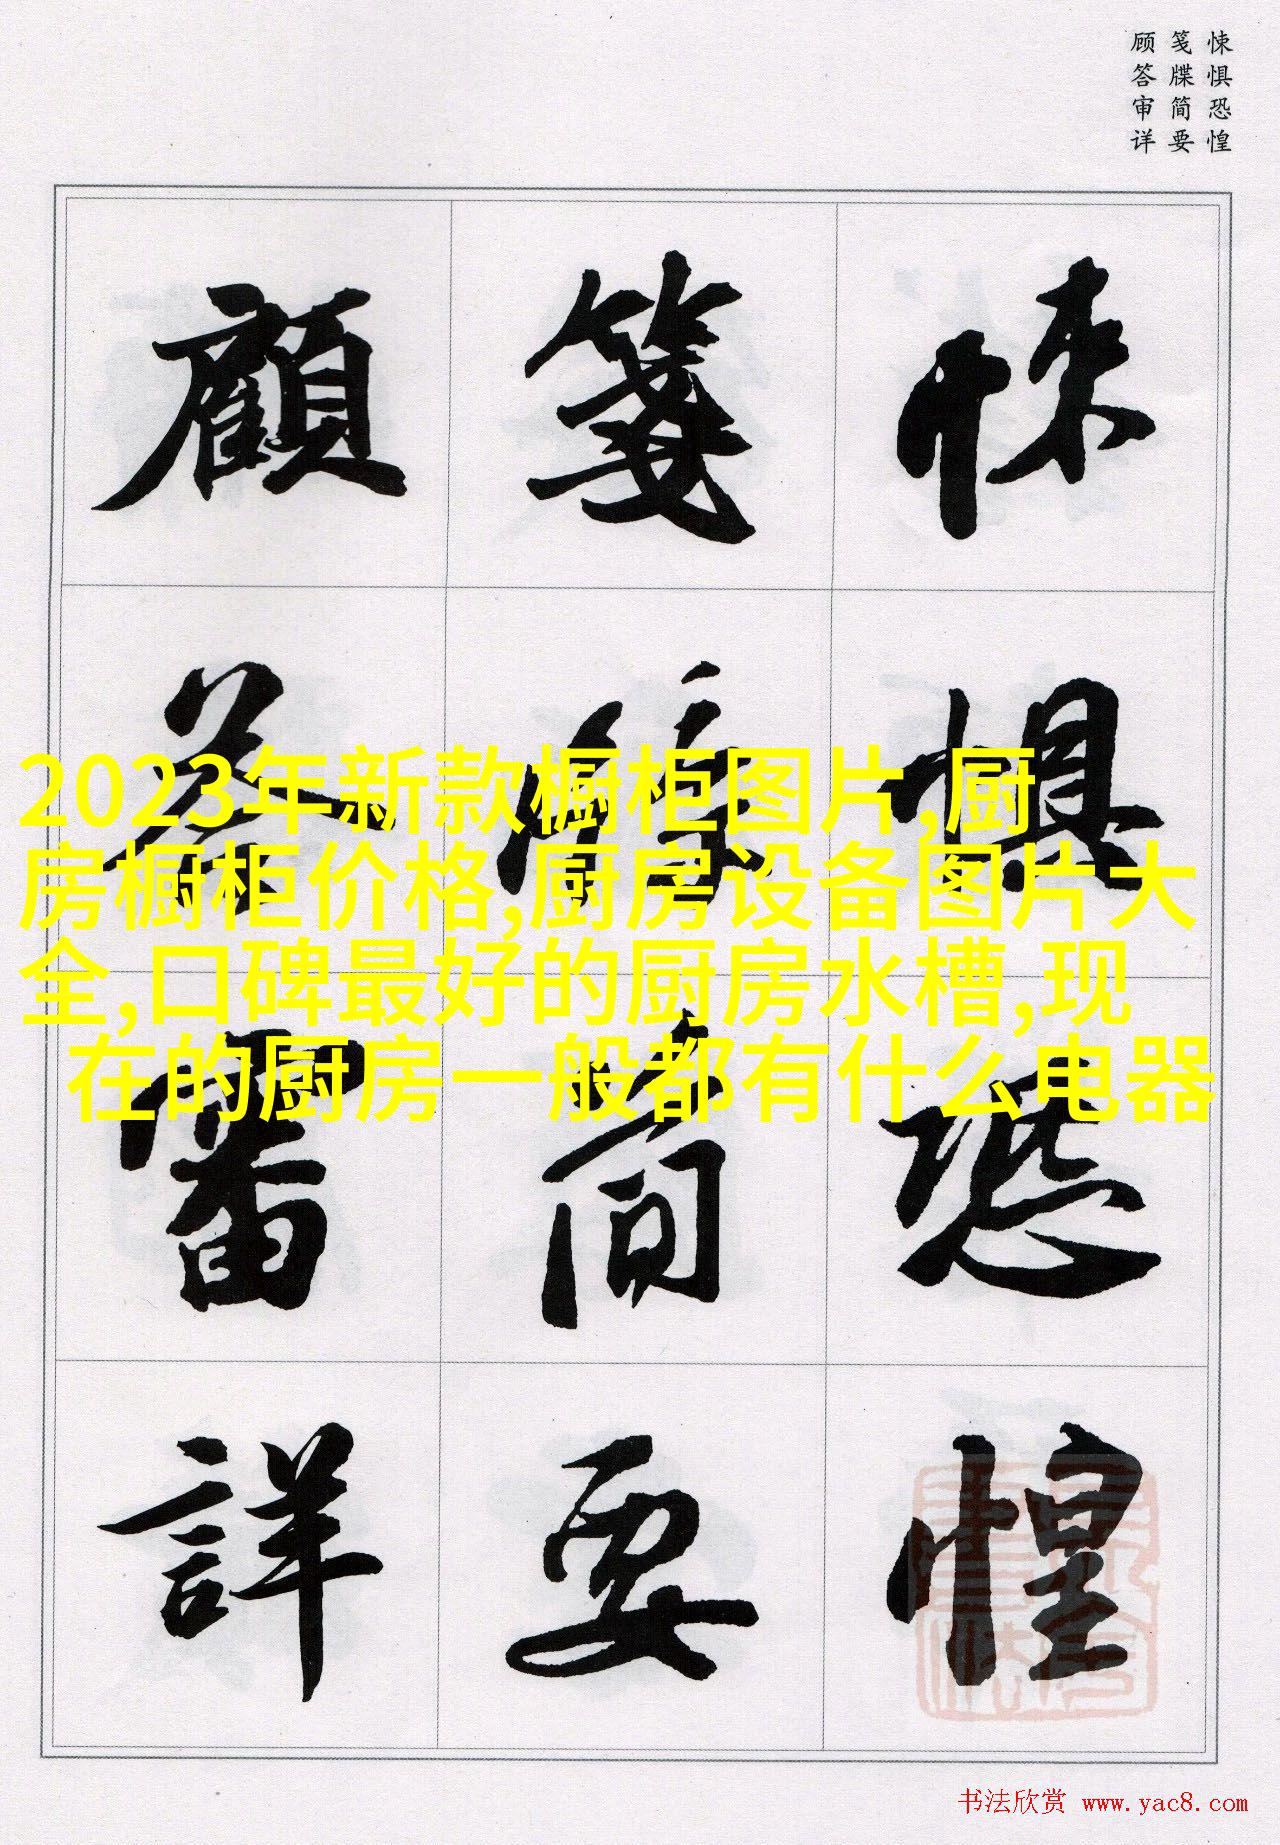 悚惧恐惶
笺牒简要
顾答审详
悚懼恐惶
箋牒簡要
顧答審詳
2023年新款橱柜图片,厨
房橱柜价格,厨房设备图片大
全,口碑最好的厨房水槽,现
在的厨房一般都有什么电器
书法欣赏 www.yac8.com